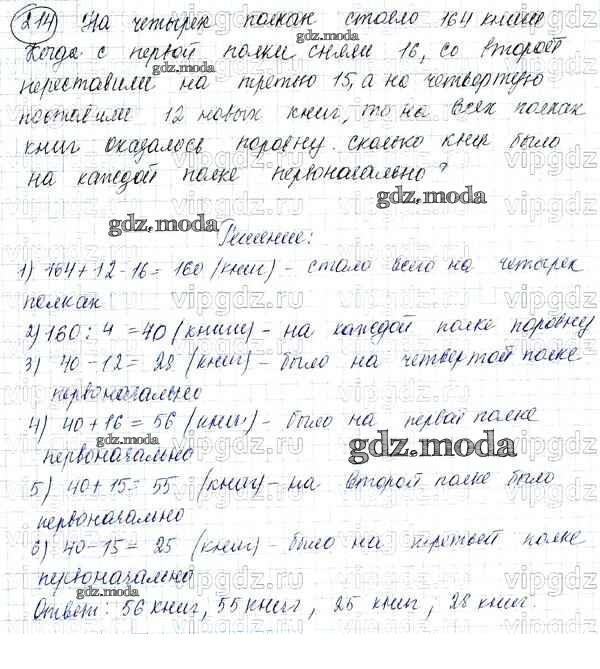 214) На четырёх полках стояло 164 книги
Когда с первой полки сняли 16, со второй
переставили на третью 15, а на четвертую
поставили 12 новых книг, то на всех полках
книг оказалось поровну. сколько книг было
на каждой полке первоначально?
gdz.moda
Решение:
1) 164+12-16=160 (книг) - стало всего на четырех
полках
2) 160:4=40 (книги) - на каждой полке поровну
3) 40-12=28 (книг) - было на четвертой полке
первоначально
4) 40+16=56 (книг) - было на первой полке
первоначально
gdz.moda
gdz.moda
5) 40+15=55 (книг) - на второй полке было
первоначально
6) 40-15=25 (книг) - было на третьей полке
первоначально
Ответ: 56 книг, 55 книг, 25 книг, 28 книг.
gdz.moda
vipgdz.ru